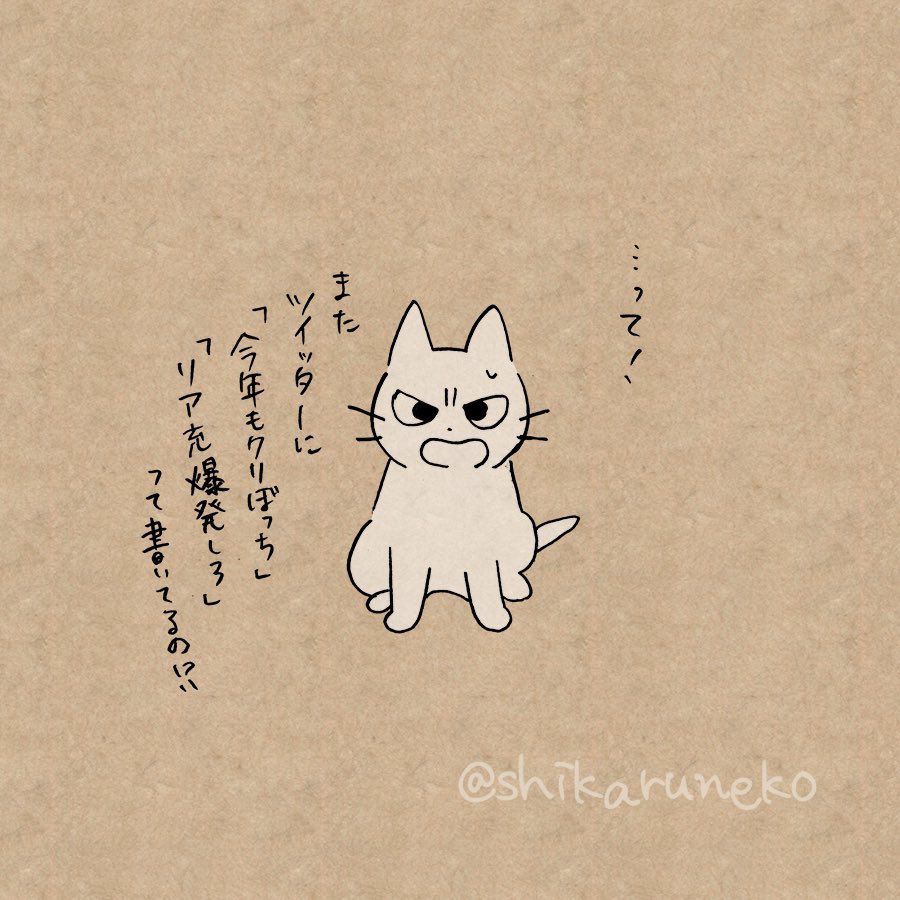 …って！
また
ツイッターに
「今年もクリぼっち」
「リア充爆発しろ」
って書いてるの!?
@shikaruneko